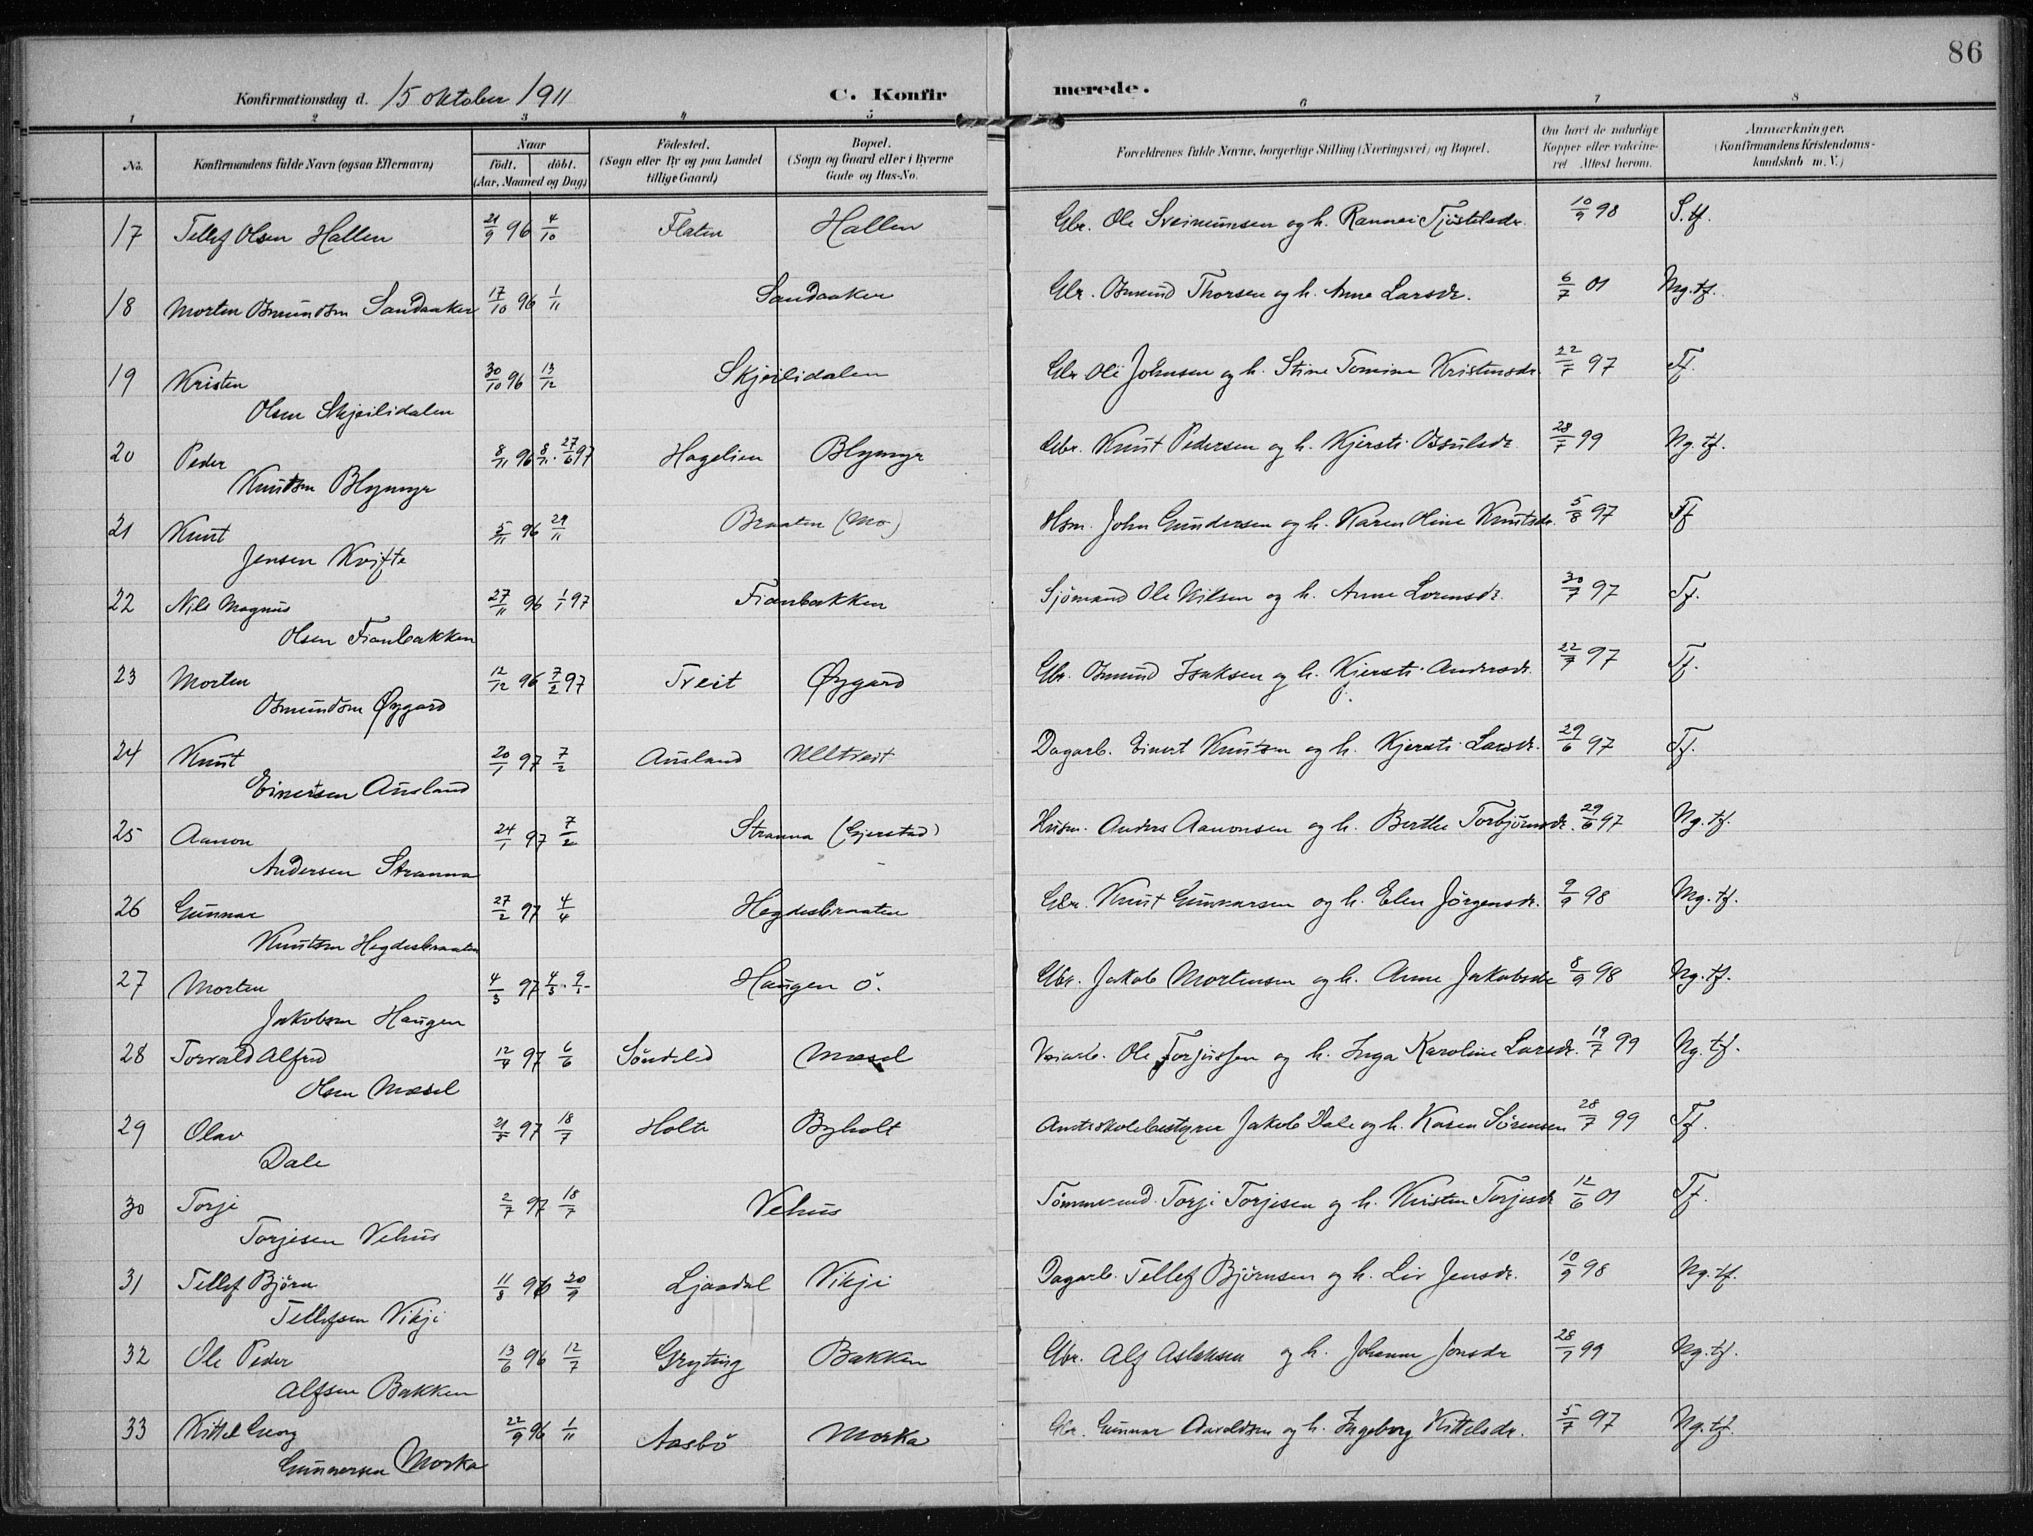 86
Konfirmationsdag d. 15 oktober 1911 C. Konfir merede.
1 2 3 4 5 6 7 8
No. Konfirmandens fulde Navn (ogsaa Efternavn) Naar födt. döbt. (Aar, Maaned og Dag) Födested. (Sogn eller By og paa Landet tillige Gaard) Bopæl. (Sogn og Gaard eller i Byerne Gade og Hus-No. Forældrenes fulde Navne, borgerlige Stilling (Næringsvei) og Bopæl. Om havt de naturlige Kopper eller vakcineret Attest herom. Anmærkninger. (Konfirmandens Kristendomskundskab m. V.)
17 Tellef Olsen Hallen 21/9 96 4/10 Flaten Hallen Gbr. Ole Sveinumsen og h. Rannei Tjöstelsdr. 10/9 98 S. tf.
18 Morten Osmundsen Sandaaker 17/10 96 1/11 Sandaaker Gbr. Osmund Thorsen og h. Anne Larsdr. 6/7 01 Mg. tf.
19 Kristen 30/10 96 13/12 Skjeilidalen Gbr Ole Johnsen og h. Stine Tomine Kristensdr. 22/7 97 Tf.
Olsen Skjeilidalen
20 Peder 8/11 96 8/11 . 27/6 97 Hagelien Blymyr Gbr. Knut Pedersen og h. Kjersti Osulsdr 28/7 99 Ng. tf.
Knutsen Blymyr
21 Knut 5/11 96 29/11 Braaten (Mo) Hsm. John Gundersen og h. Karen Oline Knutsdr. 5/8 97 Tf
Jensen Kvifte
22 Nils Magnus 27/11 96 1/1 97 Fianbakken Sjömand Ole Nilsen og h. Anne Lorensdr. 30/7 97 Tf.
Olsen Fianbakken
23 Morten 12/12 96 7/2 97 Tveit Øygard Gbr. Osmund Isaksen og h. Kjersti Andersdr. 22/7 97 Tf.
Osmundsen Øygard
24 Knut 20/1 97 7/2 Ausland Ulltveit Dagarb. Einert Knutsen og h. Kjersti Larsdr. 29/6 97 Tf.
Einertsen Ausland
25 Aanon 24/1 97 7/2 Stranna (Gjerstad) Husm. Anders Aanonsen og h. Berthe Torbjörnsdr. 29/6 97 Ng. tf.
Andersen Stranna
26 Gunnar 27/2 97 4/4 Hegdesbraaten Gbr. Knut Gunnarsen og h. Elen Jörgensdr. 9/9 98 Mg. tf.
Knutsen Hegdesbraaten
27 Morten 4/3 97 Haugen ö. Gbr. Jakob Mortensen og h. Anne Jakobsdr 8/9 98 Ng. tf.
Jakobsen Haugen
28 Torvald Alfred 12/4 97 6/6 Söndeled Mæsel Veiarb. Ole Torjussen og h. Inga Karoline Larsdr. 19/7 99 Ng. tf.
Olsen Mæsel
29 Olav 21/5 97 18/7 Holte Byholt Amtsskolebestyrer Jakob Dale og h. Karen Sörensen 28/7 99 Tf.
Dale
30 Torje 2/7 97 18/7 Vehus Tömmermd. Torje Torjesen og h. Kirsten Torjesdr 12/6 01 Tf.
Torjesen Vehus
31 Tellef Björn 11/8 96 20/9 Ljaadal Vikje Dagarb. Tellef Björnsen og h. Liv Jensdr. 10/9 98 Ng. tf.
Tellefsen Vikje
32 Ole Peder 13/6 96 12/7 Gryting Bakken Gbr. Alf Aslaksen og h. Johanne Jonsdr 28/7 99 Ng. tf.
Alfsen Bakken
33 Kittel Georg 22/9 96 1/11 Aasbö Morka Gbr. Gunnar Aavoldsen og h. Ingeborg Kittelsdr. 5/7 97 Ng. tf.
Gunnarsen Morka